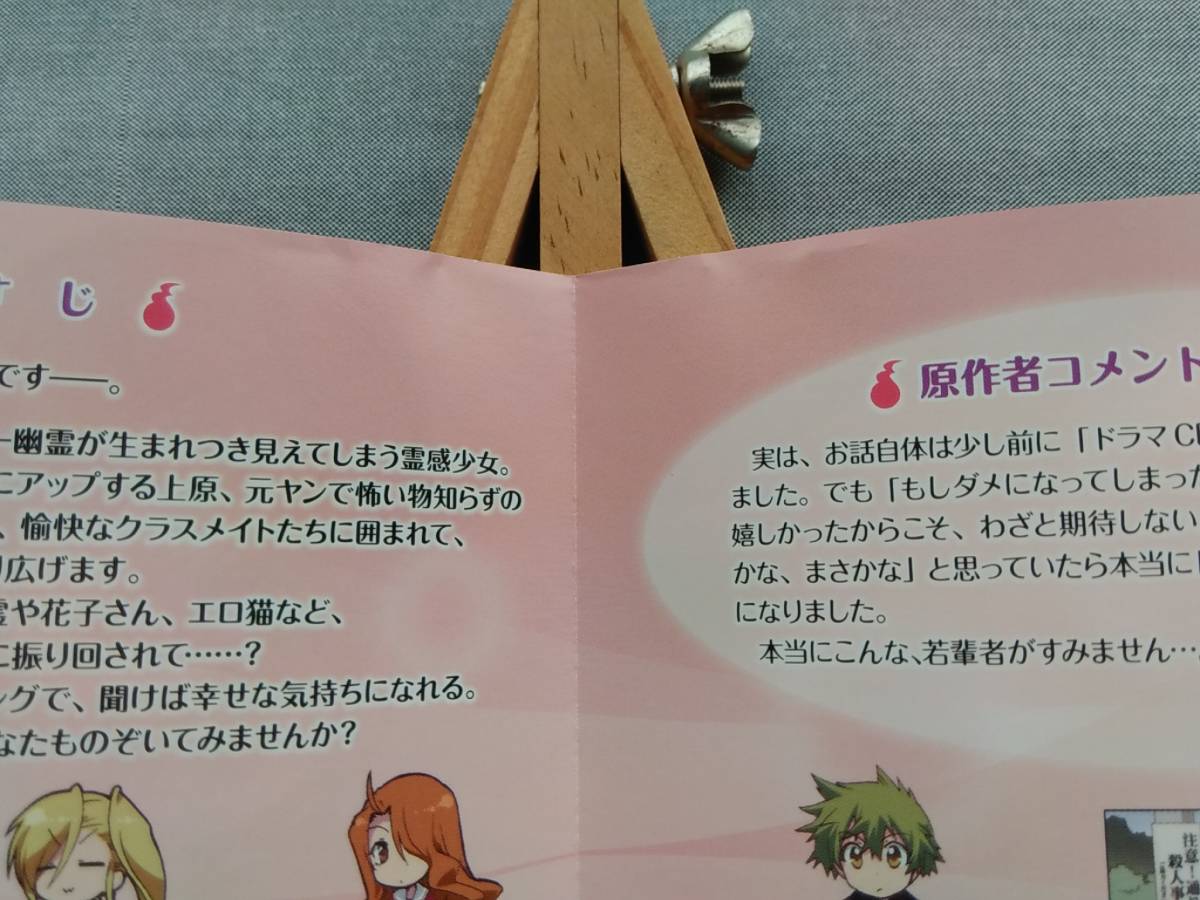 じ
です――。
幽霊が生まれつき見えてしまう霊感少女。
にアップする上原、元ヤンで怖い物知らずの
、愉快なクラスメイトたちに囲まれて、
り広げます。
霊や花子さん、エロ猫など、
に振り回されて……？
ングで、聞けば幸せな気持ちになれる。
なたものぞいてみませんか？
原作者コメント
実は、お話自体は少し前に「ドラマC
ました。でも「もしダメになってしまった
嬉しかったからこそ、わざと期待しない
かな、まさかな」と思っていたら本当に
になりました。
本当にこんな、若輩者がすみません…
注意！
殺人事